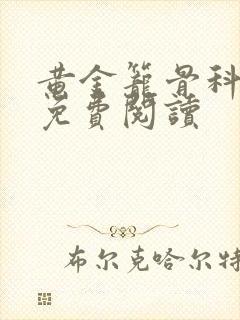 黄金籠骨科
免費閱讀
布尔克哈尔特